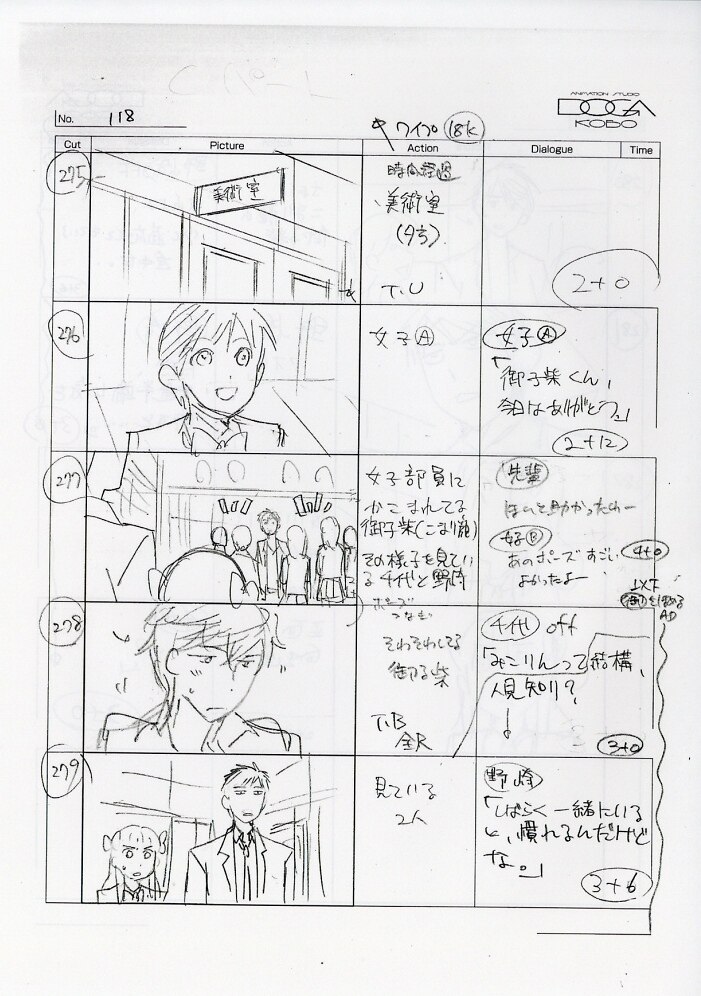 ANIMATION STUDIO
DOGA
KOBO
No. 118
ワイプ 18K
Cut Picture Action Dialogue Time
275
美術室
時間経過
美術室
T.U
2+0
276
女子Ⓐ
女子Ⓐ
「御子柴くん、
今日はありがとう」
2+12
277
女子部員に
かこまれてる
御子柴(こまり顔)
その様子を見てい
る千代と野崎
先輩
ほんと助かったわー
女子Ⓑ
あのポーズすごい
よかったよー
4+0
278
ポーズ
つなぎ
そわそわしてる
御子柴
T.B
千代 off
「みこりんって結構、
人見知り?
3+0
279
見ている
2人
野崎
「しばらく一緒にいる
と、慣れるんだけど
な。」
3+6